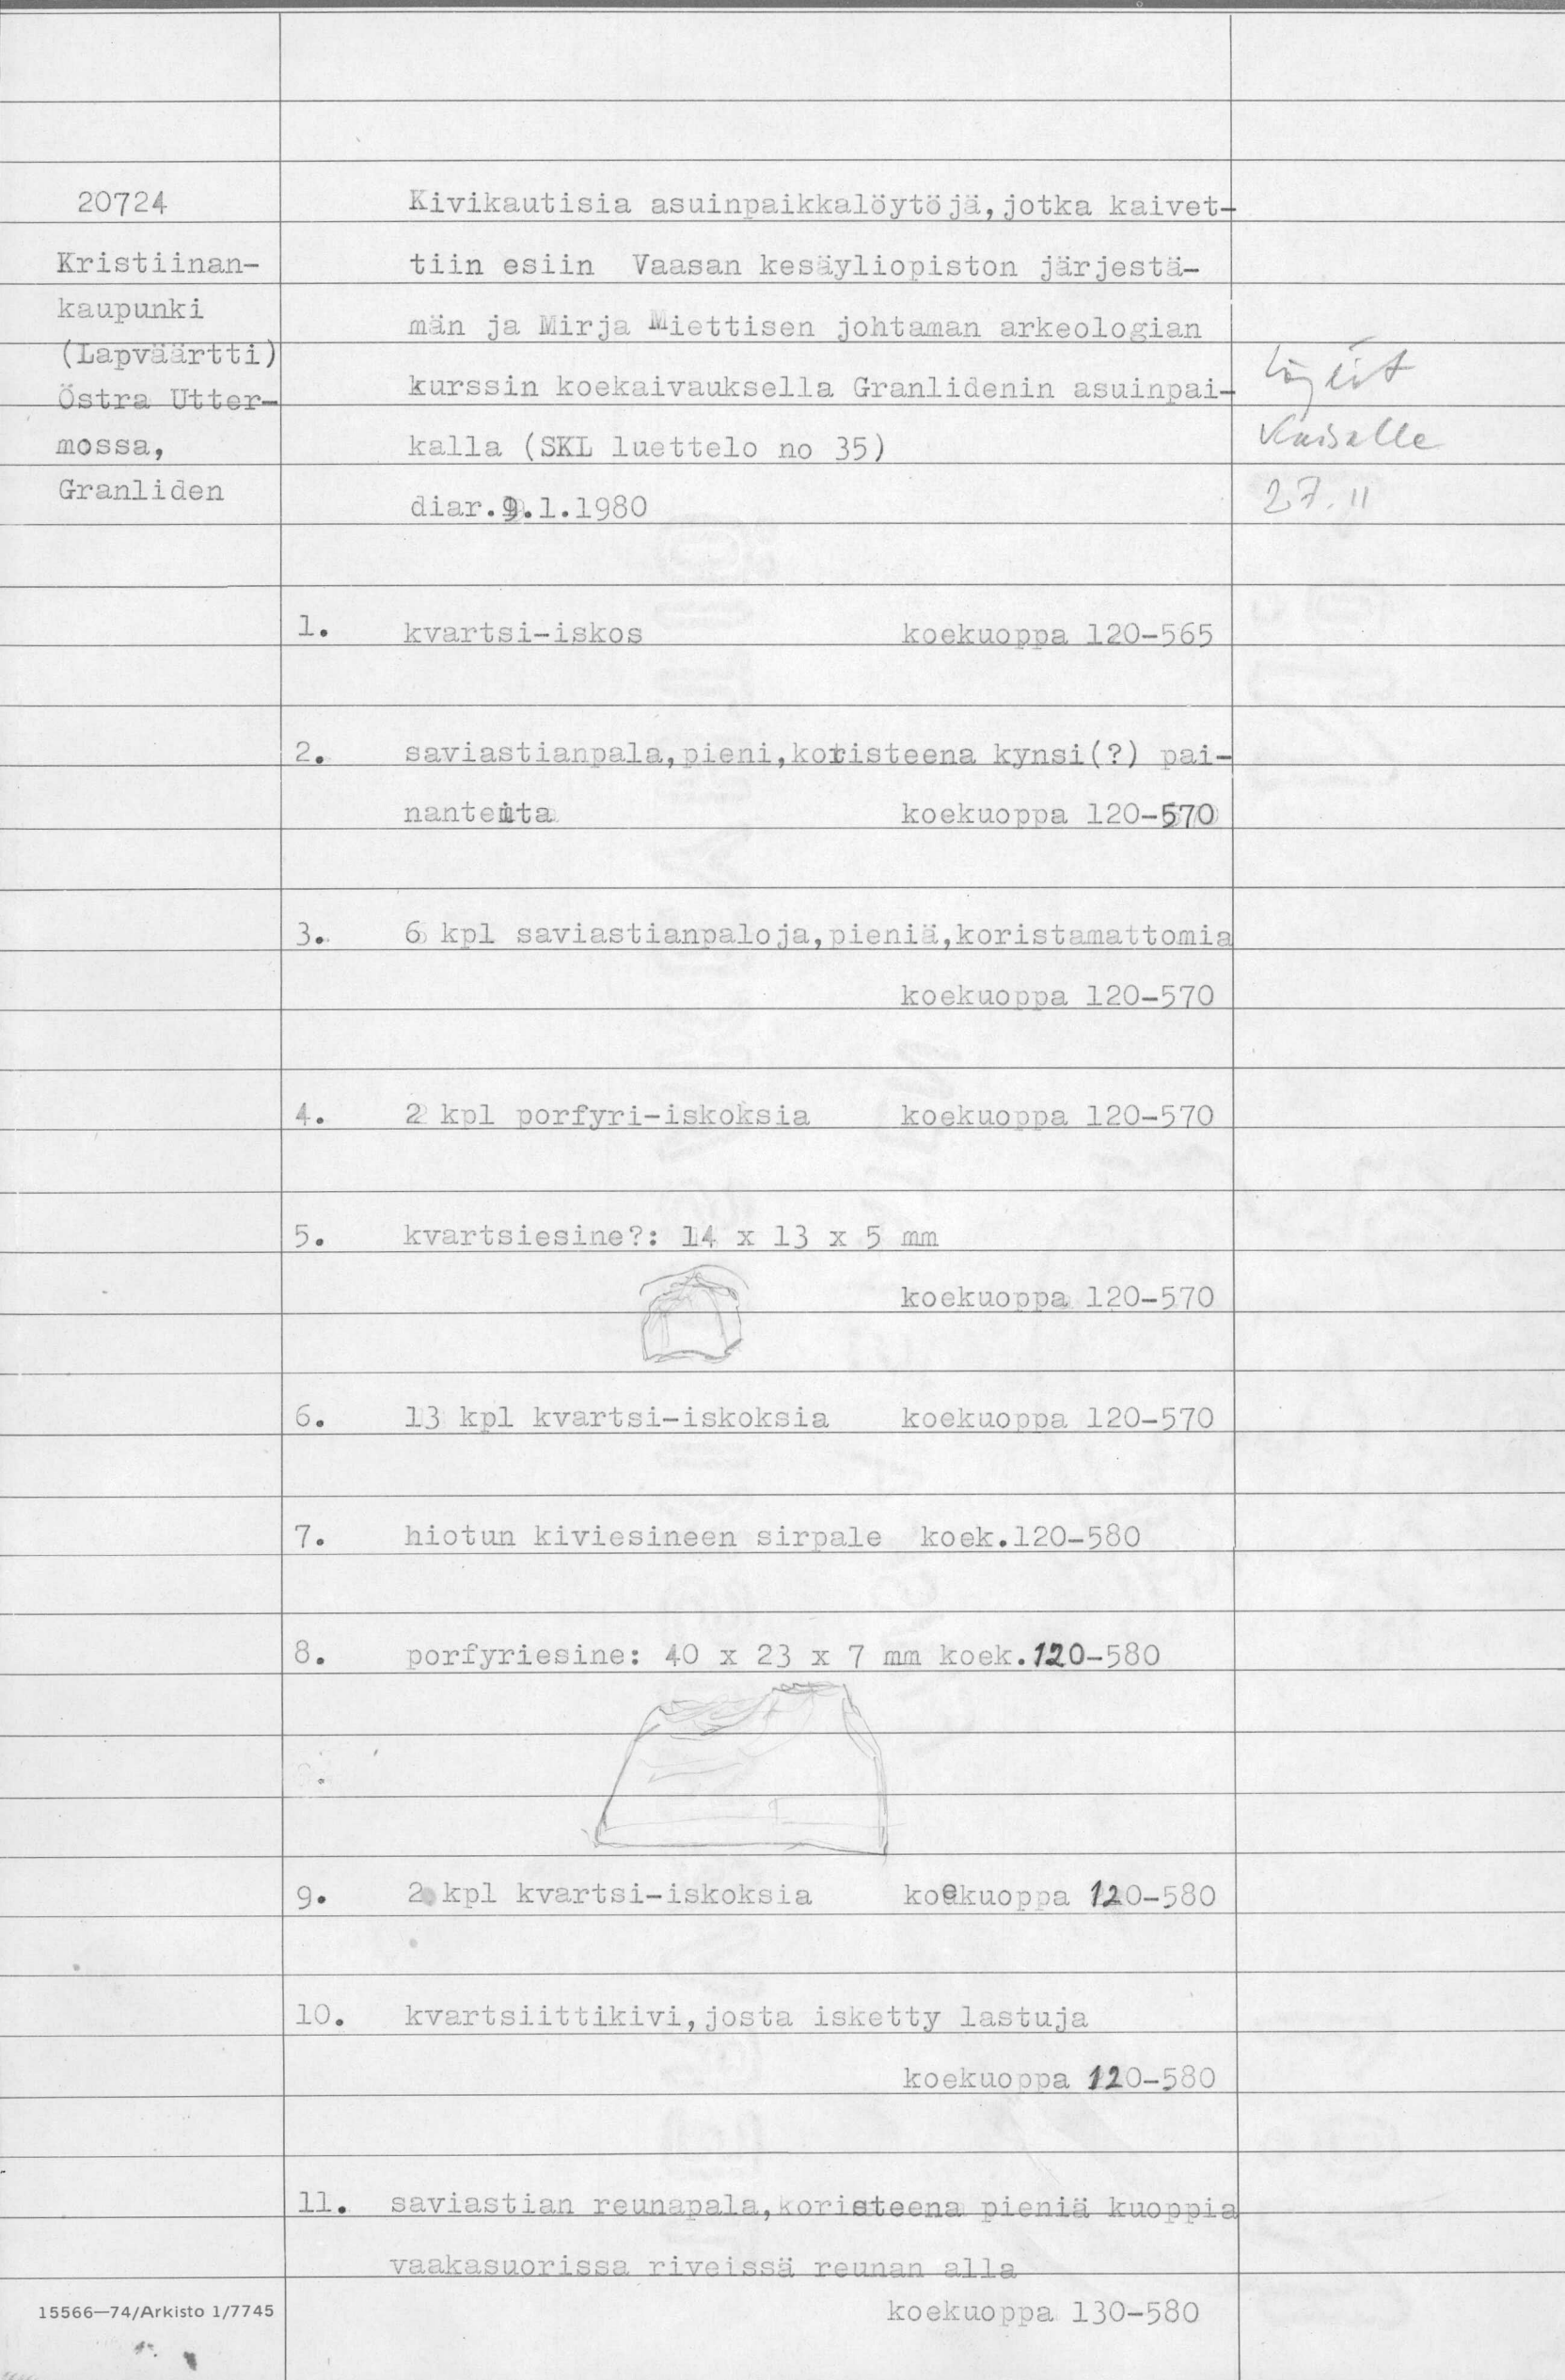 20724
Kristiinan-
kaupunki
(Lapväärtti)
Östra Utter-
mossa,
Granliden
Kivikautisia asuinpaikkalöytöjä, jotka kaivet-
tiin esiin Vaasan kesäyliopiston järjestä-
män ja Mirja Miettisen johtaman arkeologian
kurssin koekaivauksella Granlidenin asuinpai-
kalla (SKL luettelo no 35)
diar.9.1.1980
2.7.11
1. kvartsi-iskos koekuoppa 120-565
2. saviastianpala, pieni, koristeena kynsi(?) pai-
nanteita koekuoppa 120-570
3. 6 kpl saviastianpaloja, pieniä, koristamattomia
koekuoppa 120-570
4. 2 kpl porfyri-iskoksia koekuoppa 120-570
5. kvartsiesine?: 14 x 13 x 5 mm
koekuoppa 120-570
6. 13 kpl kvartsi-iskoksia koekuoppa 120-570
7. hiotun kiviesineen sirpale koek.120-580
8. porfyriesine: 40 x 23 x 7 mm koek.120-580
9. 2 kpl kvartsi-iskoksia koekuoppa 120-580
10. kvartsiittikivi, josta isketty lastuja
koekuoppa 120-580
11. saviastian reunapala, koristeena pieniä kuoppia
vaakasuorissa riveissä reunan alla
koekuoppa 130-580
15566—74/Arkisto 1/7745